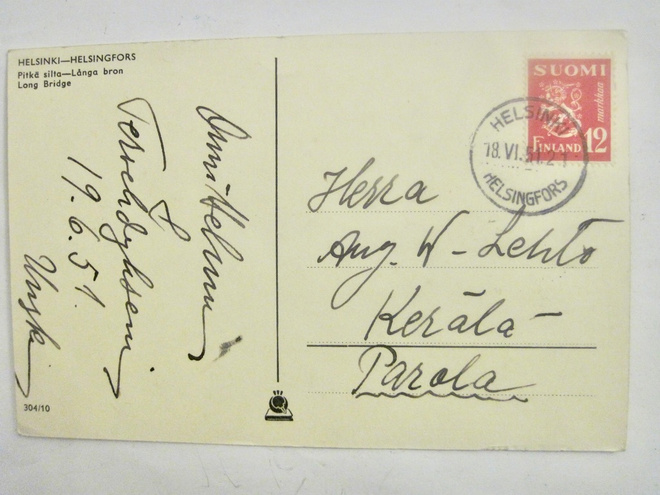 HELSINKI—HELSINGFORS
Pitkä silta—Långa bron
Long Bridge
Onni Helunu
&
19.6.51.
304/10
SUOMI
markkaa
FINLAND 12
HELSINKI
18.VI.51.21
HELSINGFORS
Herra
Aug. W-Lehto
Kerälä-
Parola